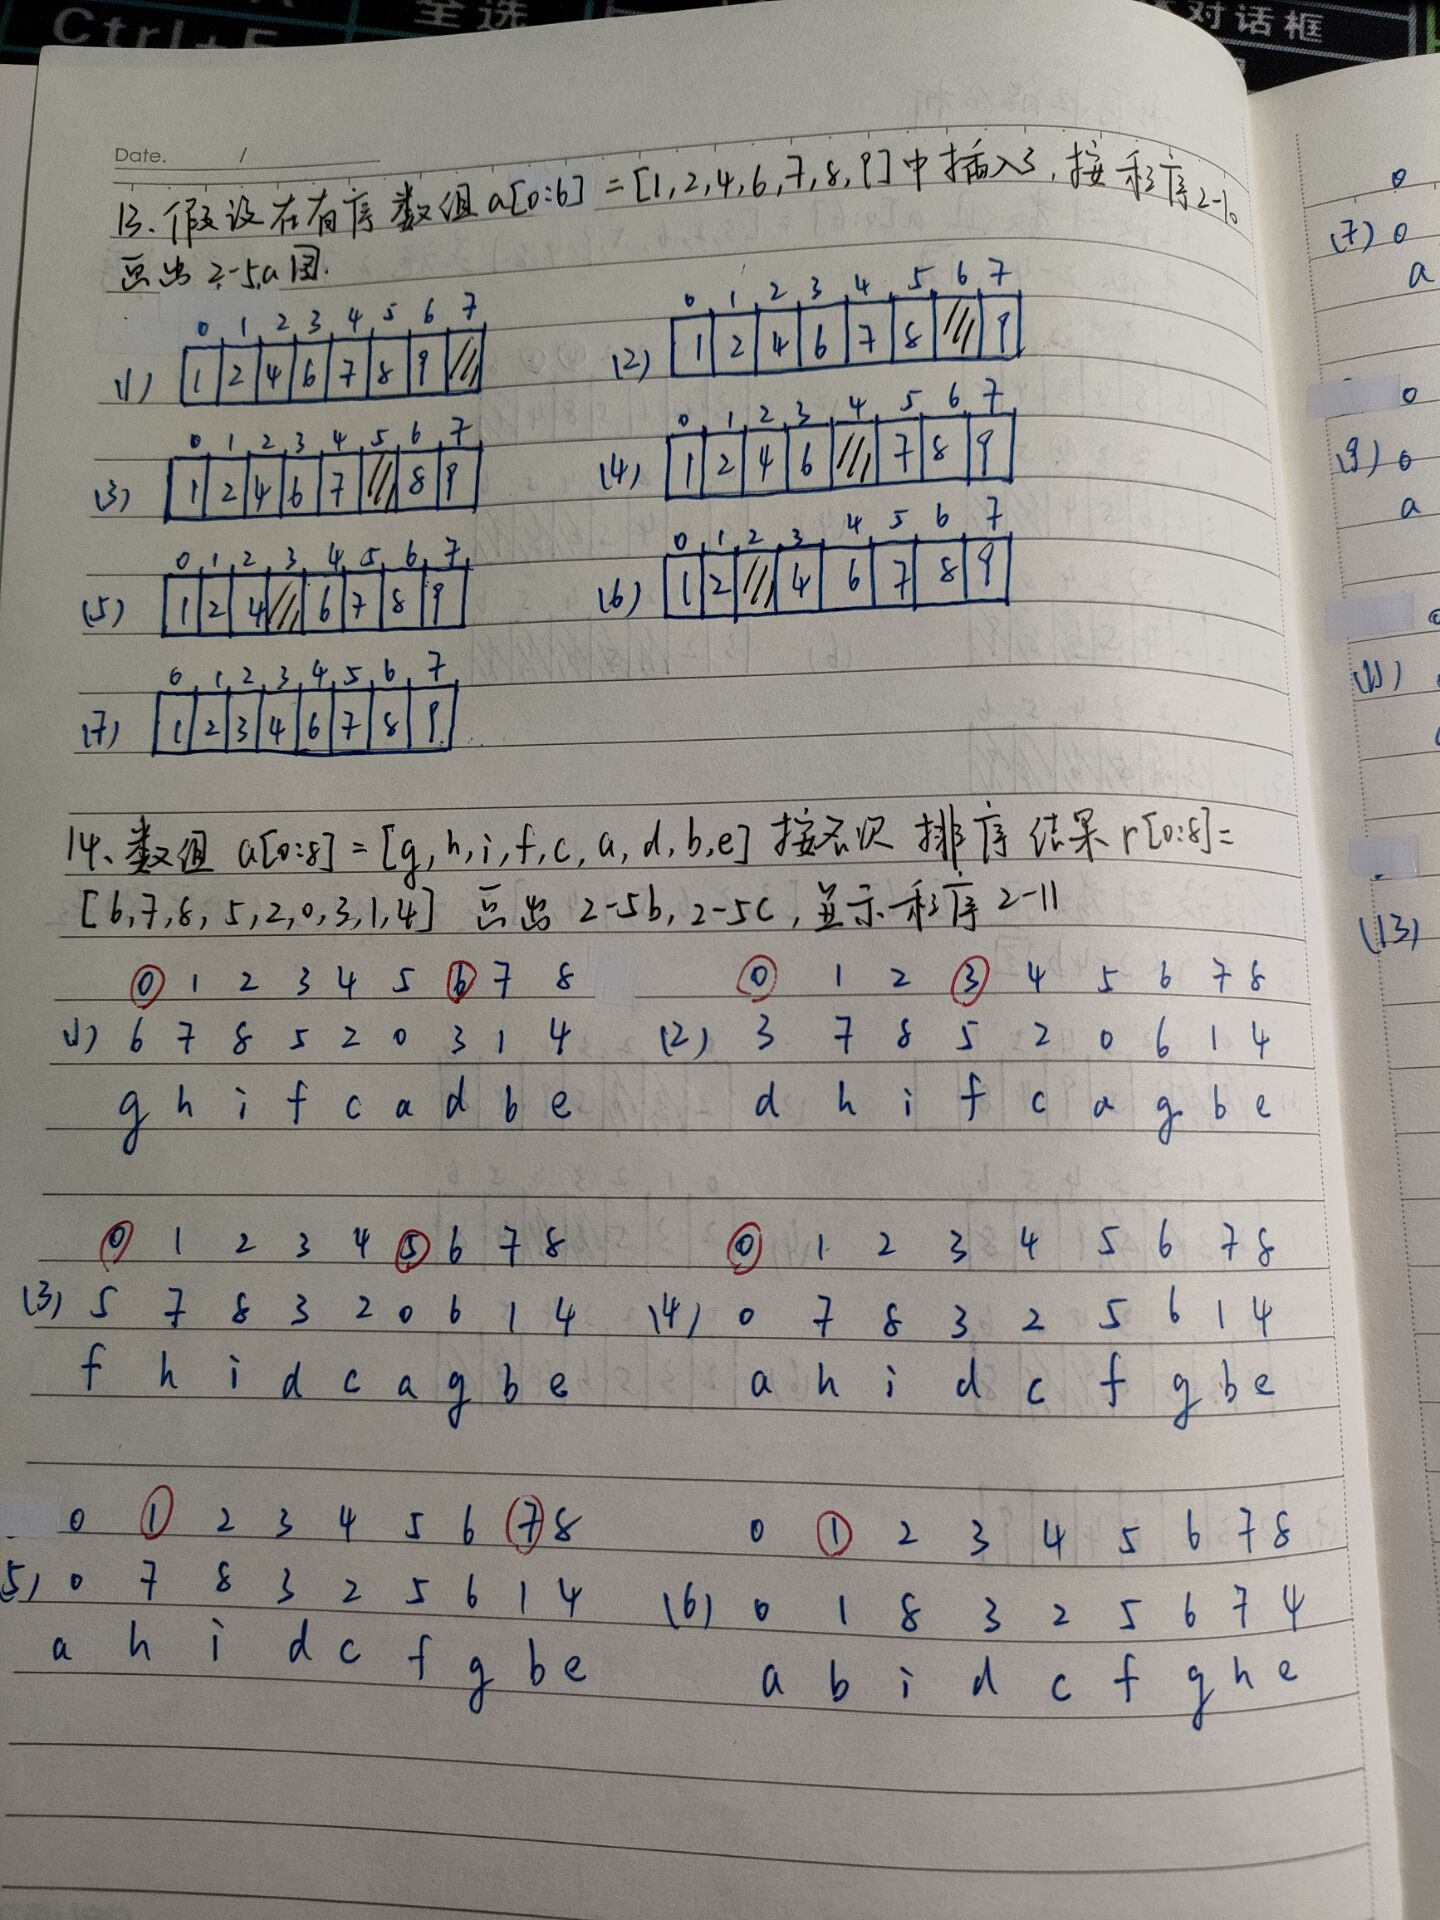 Ctrl+
全选
对话框
Date. /
13、假设在有序数组a[0:6]=[1,2,4,6,7,8,9]中插入3,按程序2-10
画出2-5a图.
0 1 2 3 4 5 6 7
(1) 1 2 4 6 7 8 9
0 1 2 3 4 5 6 7
(2) 1 2 4 6 7 8 9
0 1 2 3 4 5 6 7
(3) 1 2 4 6 7 8 9
0 1 2 3 4 5 6 7
(4) 1 2 4 6 7 8 9
0 1 2 3 4 5 6 7
(5) 1 2 4 6 7 8 9
0 1 2 3 4 5 6 7
(6) 1 2 4 6 7 8 9
0 1 2 3 4 5 6 7
(7) 1 2 3 4 6 7 8 9
14、数组 a[0:8]=[g,h,i,f,c,a,d,b,e] 按名次 排序 结果 r[0:8]=
[6,7,8,5,2,0,3,1,4] 画出 2-5b,2-5c,显示程序 2-11
0 1 2 3 4 5 6 7 8
(1) 6 7 8 5 2 0 3 1 4
g h i f c a d b e
0 1 2 3 4 5 6 7 8
(2) 3 7 8 5 2 0 6 1 4
d h i f c a g b e
0 1 2 3 4 5 6 7 8
(3) 5 7 8 3 2 0 6 1 4
f h i d c a g b e
0 1 2 3 4 5 6 7 8
(4) 0 7 8 3 2 5 6 1 4
a h i d c f g b e
0 1 2 3 4 5 6 7 8
5) 0 7 8 3 2 5 6 1 4
a h i d c f g b e
0 1 2 3 4 5 6 7 8
(6) 0 1 8 3 2 5 6 7 4
a b i d c f g h e
0
(7) 0
a
0
(9) 0
a
0
(11)
(13)